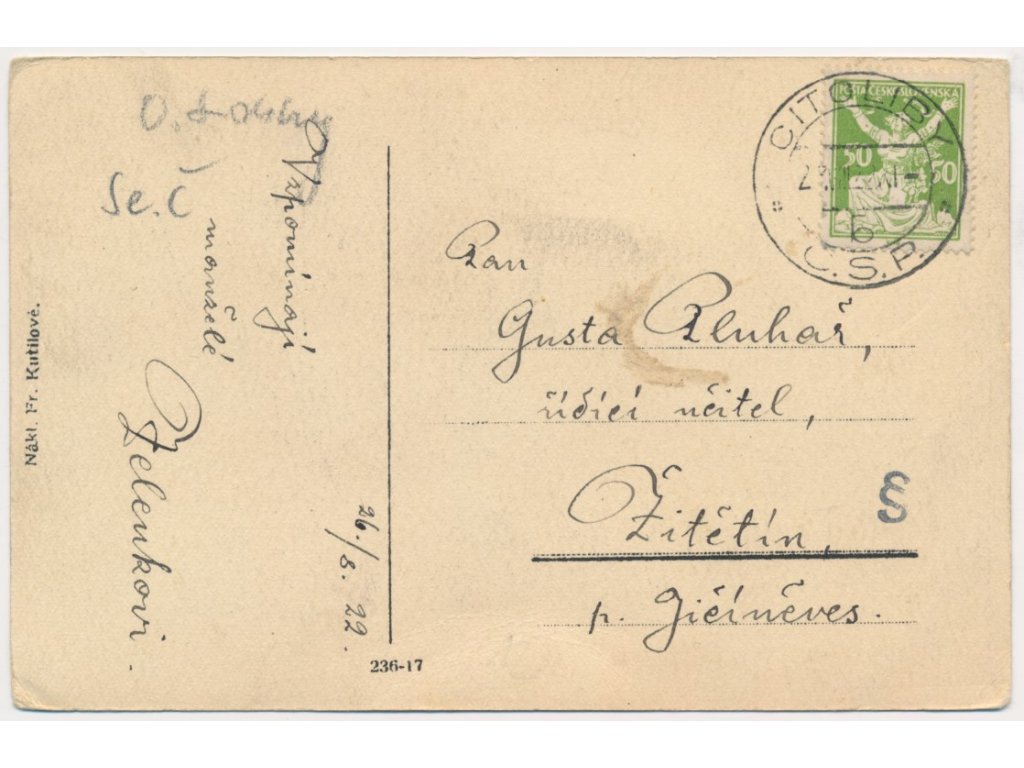 Se.Č
Vzpomínají
manželé
Zelenkovi.
26./8. 22.
Nákl. Fr. Kutilové.
236-17
POŠTA ČESKOSLOVENSKÁ
50 50
CITOLIBY
Č.S.P.
Pan
Gusta Pluhař,
řídící učitel,
Žitětín,
p. Gičíněves.
§